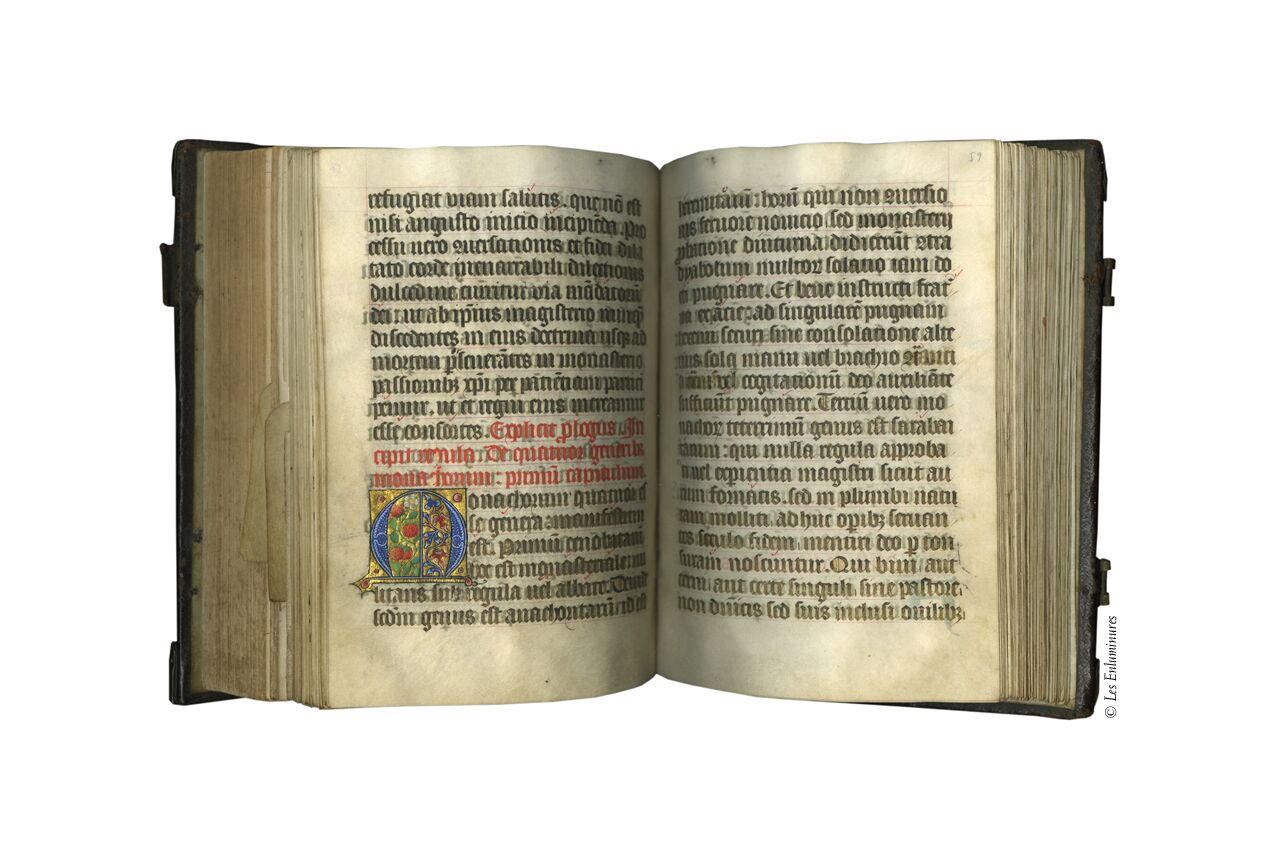 refugiat viam salutis. que nō est
nisi angusto inicio incipiēda. Pro
cessu uero ꝯuersationis et fidei dila
tato corde ineuarrabili dilectionis
dulcedine curritur via mādatorū
dei: ut ab ipsius magisterio nunqꝫ
discedentes in eius doctrina usqꝫ ad
mortem ꝑseuerātes in monasterio
passionibꝫ xpi per patientiam partici
pemur. ut et regni eius mereamur
esse consortes. Explicit ꝓlogus. In
cipit regula. De quatuor generibꝫ
monachorum: primū capitulum.
Monachorum quatuor es
se genera: manifestum
est. Primum cenobitarū
hoc est monasteriale: mi
litans sub regula uel abbate. Deinde
secdm genus est anachoritarū id est
59
heremitarū: horū qui non ꝯuersio
nis feruore nouicio sed monasterij
ꝓbatione diuturna didicerūt ꝯtra
dyabolum multor solatio iam do
cti pugnare. Et bene instructi frat
na ex acie: ad singularē pugnam
heremi securi sine consolatione alte
rius sola manu uel brachio ꝯtra viti
a carnis vel cogitationū deo auxiliāte
sufficiūt pugnare. Terciū uero mo
nachor teterrimū genus est saraba
itarum: qui nulla regula approba
ti uel experientia magistri sicut au
rum fornacis. sed in plumbi natu
ram molliti. ad huc opibꝫ seruien
tes seculo fidem. mentiri deo ꝑ ton
suram noscuntur. Qui bini aut
terni. aut certe singuli sine pastore.
non dnicis sed suis inclusi ouilibꝫ
© Les Enluminures